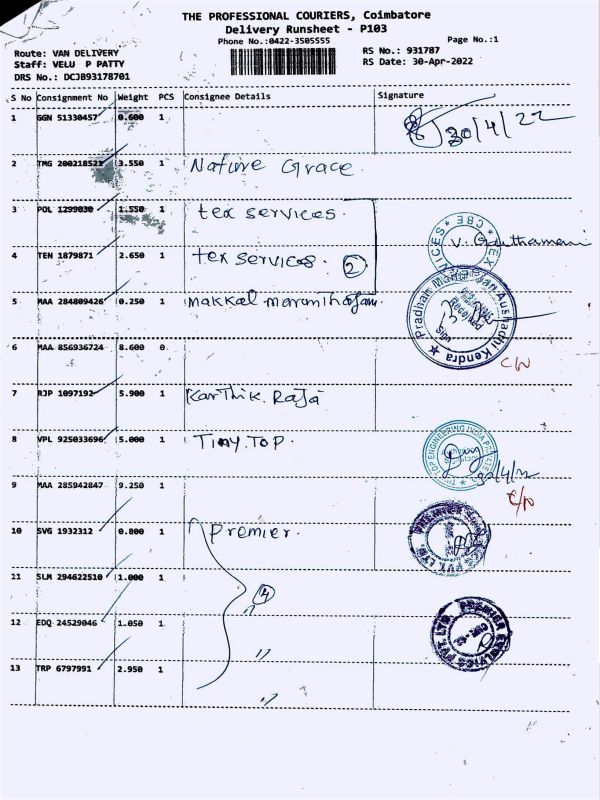 THE PROFESSIONAL COURIERS, Coimbatore
Delivery Runsheet - P103
Phone No.:0422-3505555
Page No.:1
Route: VAN DELIVERY
Staff: VELU P PATTY
DRS No.: DCJB93178701
RS No.: 931787
RS Date: 30-Apr-2022
S No Consignment No Weight PCS Consignee Details Signature
1 GGN 51330457 0.600 1 30/4/22
2 TMG 200218521 3.550 1 Nature Grace
3 POL 1299030 1.550 1 tex services.
4 TEN 1879871 2.650 1 tex services. 2
5 MAA 284809426 0.250 1 makkal
Pradhan Aushadhi Kendra
Sign
6 MAA 856936724 8.600 0
7 RJP 1097192 5.900 1 Karthik. Raja
8 VPL 925033696 5.000 1 Tiny.TOP.
9 MAA 285942847 9.250 1
10 SVG 1932312 0.800 1 Premier.
11 SLM 294622510 1.000 1 4
12 EDQ 24529046 1.050 1 "
13 TRP 6797991 2.950 1 "
"